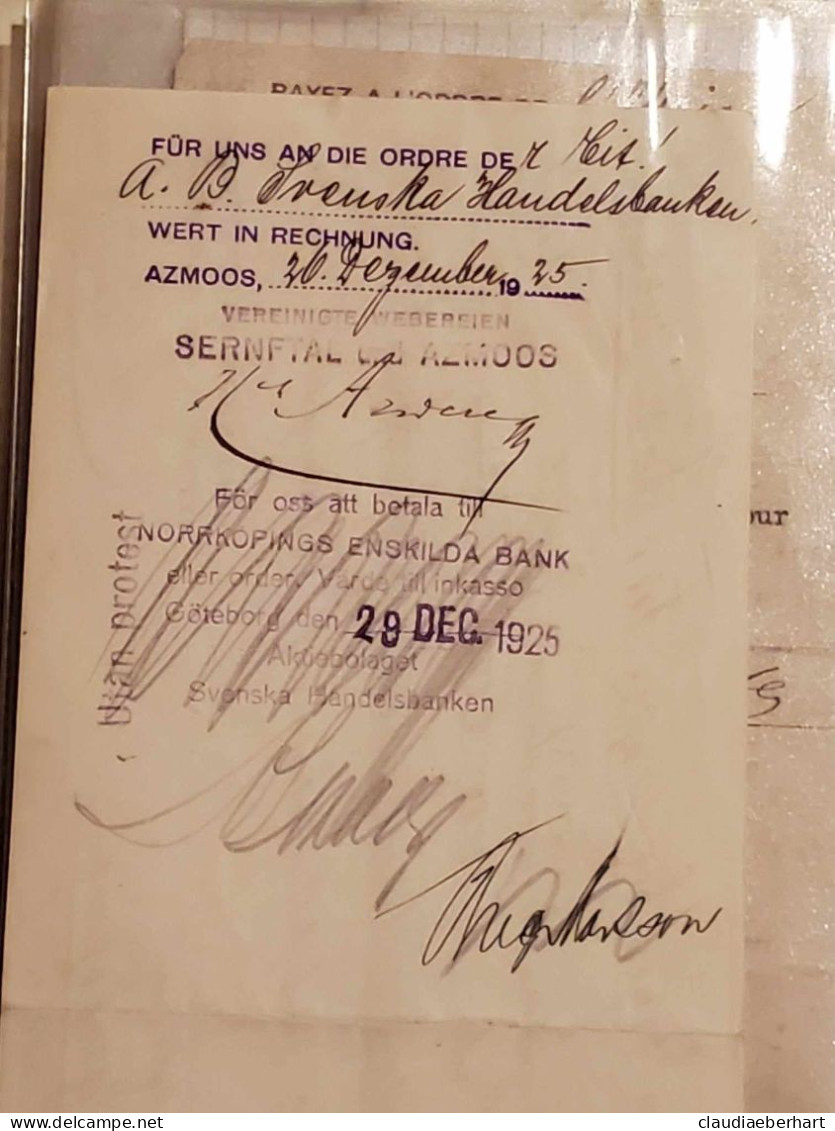 PAYEZ A L'ORDRE DE
FÜR UNS AN DIE ORDRE DER Tit!
A. B. Svenska Handelsbanken,
WERT IN RECHNUNG.
AZMOOS, 26. Dezember 1925.
VEREINIGTE WEBEREIEN
SERNFTAL und AZMOOS
För oss att betala till
NORRKÖPINGS ENSKILDA BANK
eller order. Värde till inkasso
Göteborg den 29 DEC. 1925
Aktiebolaget
Svenska Handelsbanken
Utan protest
our
claudiaeberhart